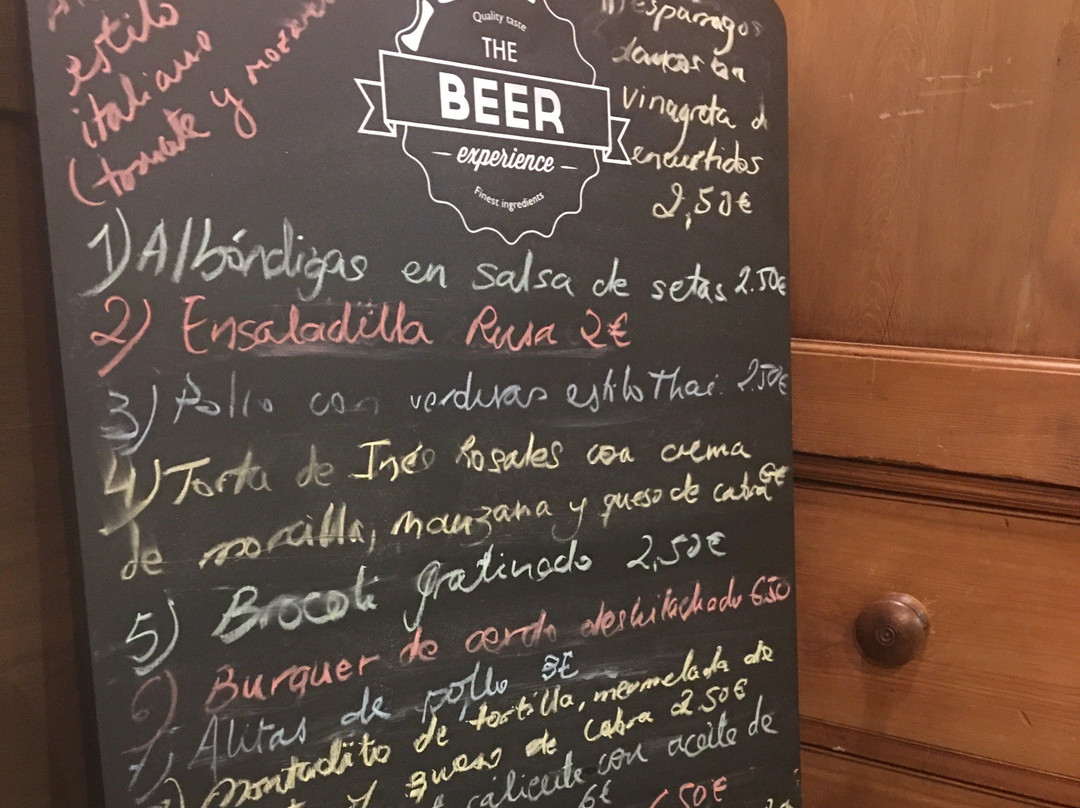 estilo
italiano
(tomate y
Quality taste
THE
BEER
experience
Finest ingredients
esparragos
vinagreta d
encurtidos
2,50€
1) Albóndigas en salsa de setas 2.50€
2) Ensaladilla Rusa 2€
3) Pollo con verduras estilo Thai. 2.50€
4) Torta de Inés Rosales con crema
de morcilla, manzana y queso de cabra 6€
5) Brocoli gratinado 2,50€
6) Burguer de cerdo deshilachado 6.50
7) Alitas de pollo 3€
montadito de tortilla, mermelada de
y queso de cabra 2.50€
caliente con aceite de
6€
50€